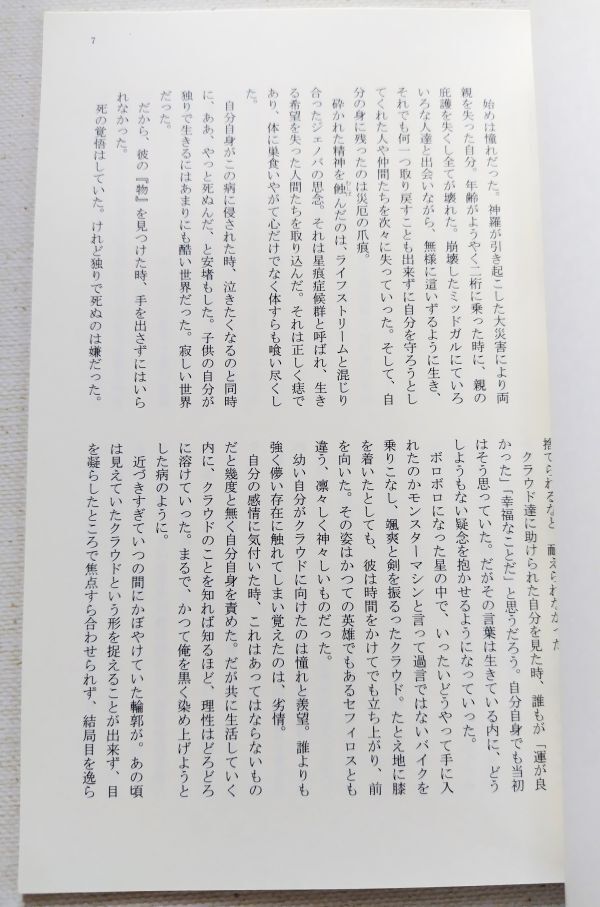 7
始めは憧れだった。神羅が引き起こした大災害により両
親を失った自分。年齢がようやく二桁に乗った時に、親の
庇護を失くし全てが壊れた。崩壊したミッドガルにていろ
いろな人達と出会いながら、無様に這いずるように生き、
それでも何一つ取り戻すことも出来ずに自分を守ろうとし
てくれた人や仲間たちを次々に失っていった。そして、自
分の身に残ったのは災厄の爪痕。
砕かれた精神を蝕んだのは、ライフストリームと混じり
合ったジェノバの思念。それは星痕症候群と呼ばれ、生き
る希望を失った人間たちを取り込んだ。それは正しく痣で
あり、体に巣食いやがて心だけでなく体すらも喰い尽くし
た。
自分自身がこの病に侵された時、泣きたくなるのと同時
に、ああ、やっと死ぬんだ、と安堵もした。子供の自分が
独りで生きるにはあまりにも酷い世界だった。寂しい世界
だった。
だから、彼の『物』を見つけた時、手を出さずにはいら
れなかった。
死の覚悟はしていた。けれど独りで死ぬのは嫌だった。
捨てられるなど、耐えられなかった
クラウド達に助けられた自分を見た時、誰もが「運が良
かった」「幸福なことだ」と思うだろう。自分自身でも当初
はそう思っていた。だがその言葉は生きている内に、どう
しようもない疑念を抱かせるようになっていった。
ボロボロになった星の中で、いったいどうやって手に入
れたのかモンスターマシンと言って過言ではないバイクを
乗りこなし、颯爽と剣を振るったクラウド。たとえ地に膝
を着いたとしても、彼は時間をかけてでも立ち上がり、前
を向いた。その姿はかつての英雄でもあるセフィロスとも
違う、凛々しく神々しいものだった。
幼い自分がクラウドに向けたのは憧れと羨望。誰よりも
強く儚い存在に触れてしまい覚えたのは、劣情。
自分の感情に気付いた時、これはあってはならないもの
だと幾度と無く自分自身を責めた。だが共に生活していく
内に、クラウドのことを知れば知るほど、理性はどろどろ
に溶けていった。まるで、かつて俺を黒く染め上げようと
した病のように。
近づきすぎていつの間にかぼやけていた輪郭が。あの頃
は見えていたクラウドという形を捉えることが出来ず、目
を凝らしたところで焦点すら合わせられず、結局目を逸ら